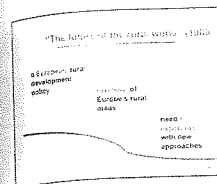 "The future of the rural world" (1988)
a European rural
development
policy
of
Europe's rural
areas
need
with new
approaches